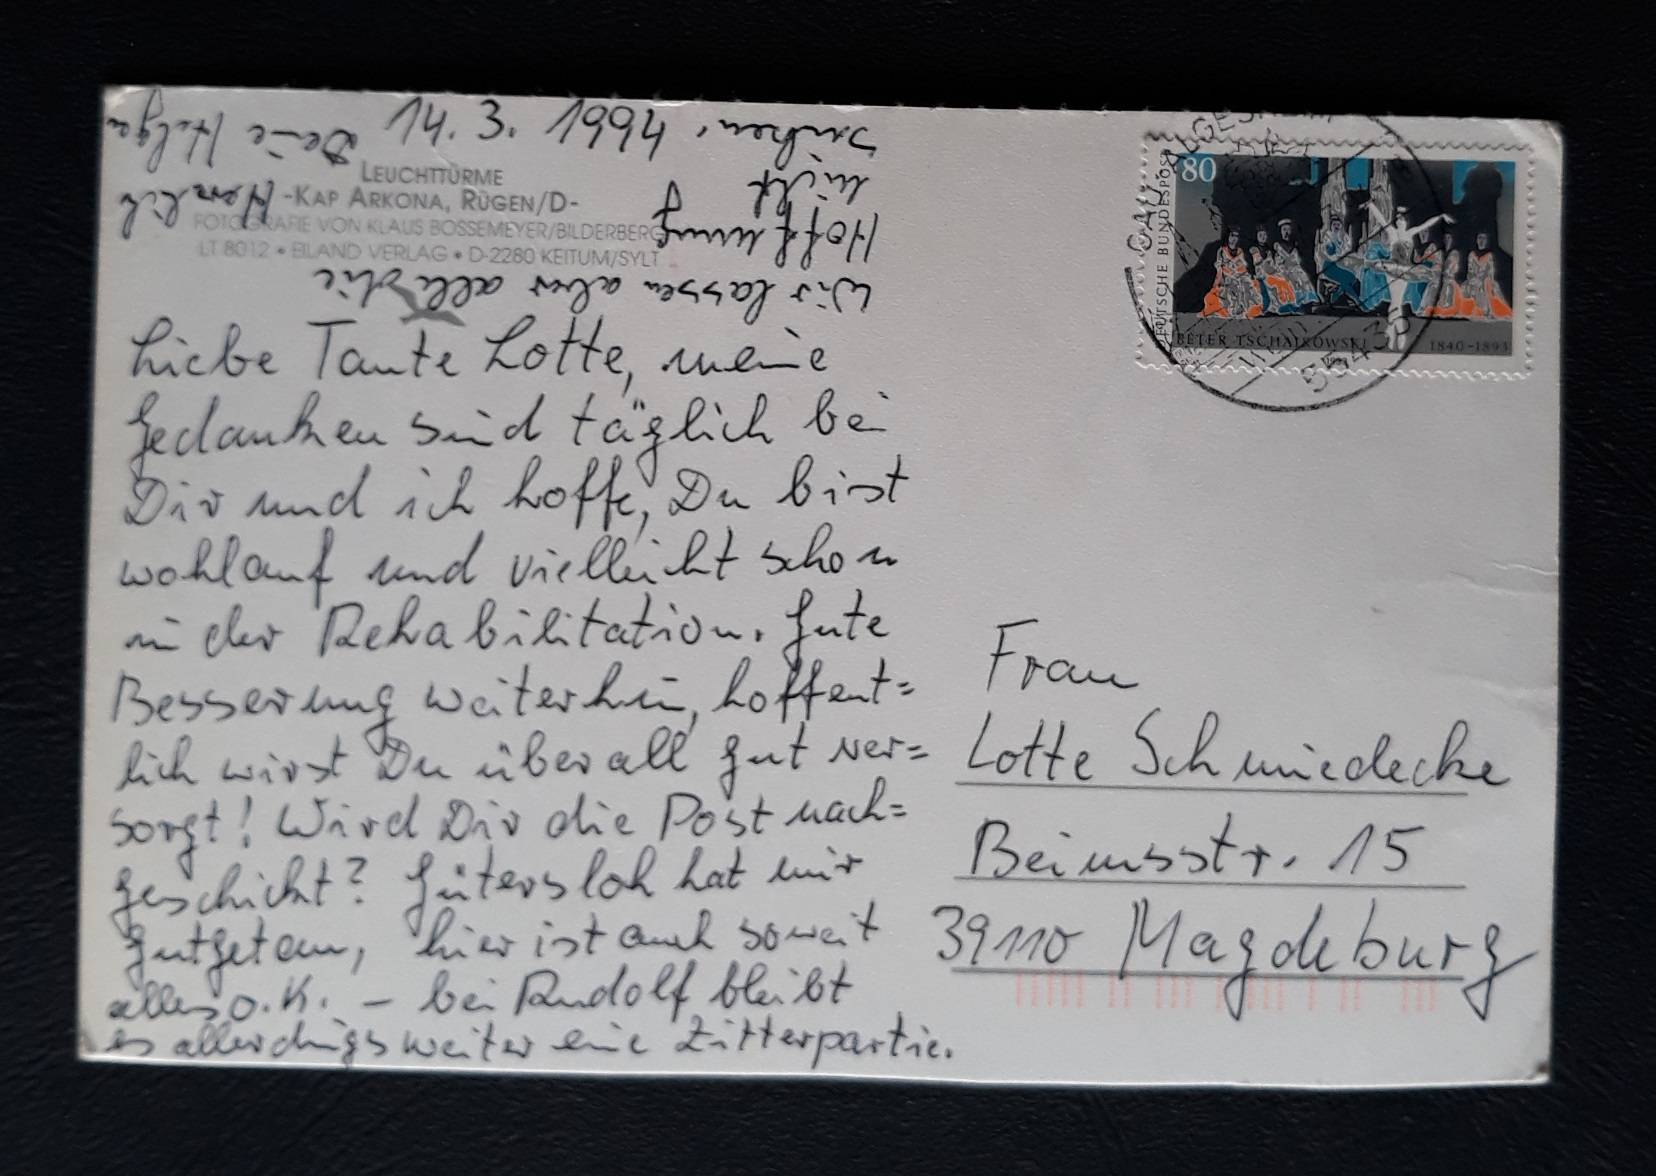 LEUCHTTÜRME
-KAP ARKONA, RÜGEN/D-
FOTOGRAFIE VON KLAUS BOSSEMEYER/BILDERBERG
LT 8012 • EILAND VERLAG • D-2280 KEITUM/SYLT
14.3.1994
Liebe Tante Lotte, meine
Gedanken sind täglich bei
Dir und ich hoffe, Du bist
wohlauf und vielleicht schon
in der Rehabilitation. Gute
Besserung weiterhin, hoffent=
lich wirst Du überall gut ver=
sorgt! Wird Dir die Post nach=
geschickt? Gütersloh hat mir
gutgetan, hier ist auch soweit
alles o.K. – bei Rudolf bleibt
es allerdings weiter eine Zitterpartie.
Wir lassen aber alle die
Hoffnung
nicht
sinken.
Herzlich
Deine Helga
DEUTSCHE BUNDESPOST
80
PETER TSCHAIKOWSKI 1840-1893
GAU-ALGESHEIM
55435
Frau
Lotte Schmiedecke
Beimsstr. 15
39110 Magdeburg